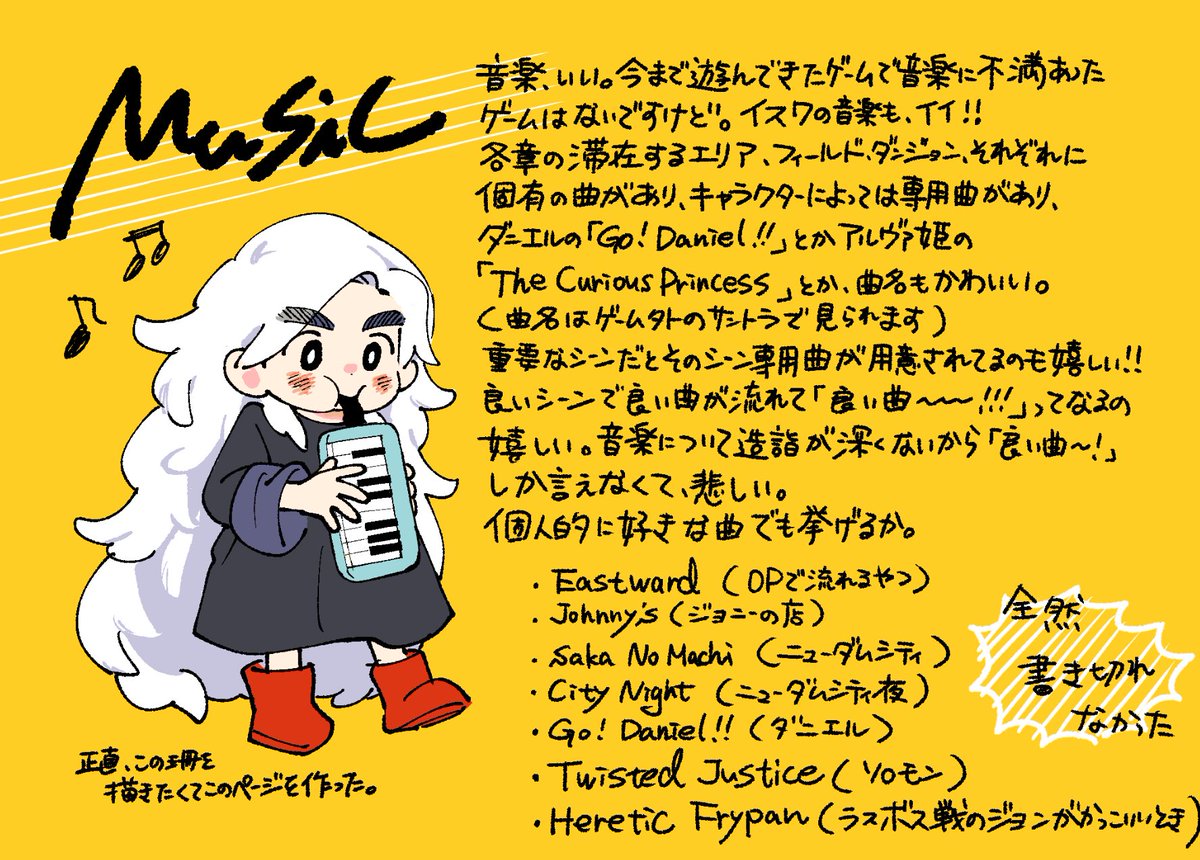 Music
音楽、いい。今まで遊んできたゲームで音楽に不満あった
ゲームはないですけど。イスワの音楽も、イイ!!
各章の滞在するエリア、フィールド、ダンジョン、それぞれに
個有の曲があり、キャラクターによっては専用曲があり、
ダニエルの「Go! Daniel!!」とかアルヴァ姫の
「The Curious Princess」とか、曲名もかわいい。
(曲名はゲーム外のサントラで見られます)
重要なシーンだとそのシーン専用曲が用意されてるのも嬉しい!!
良いシーンで良い曲が流れて「良い曲〜〜〜!!!」ってなるの
嬉しい。音楽について造詣が深くないから「良い曲〜!」
しか言えなくて、悲しい。
個人的に好きな曲でも挙げるか。
・Eastward (OPで流れるやつ)
・Johnny's (ジョニーの店)
・Saka No Machi (ニューダムシティ)
・City Night (ニューダムシティ夜)
・Go! Daniel!! (ダニエル)
・Twisted Justice (ソロモン)
・Heretic Frypan (ラスボス戦のジョンがかっこいいとき)
全然
書き切れ
なかった
正直、この珊を
描きたくてこのページを作った。